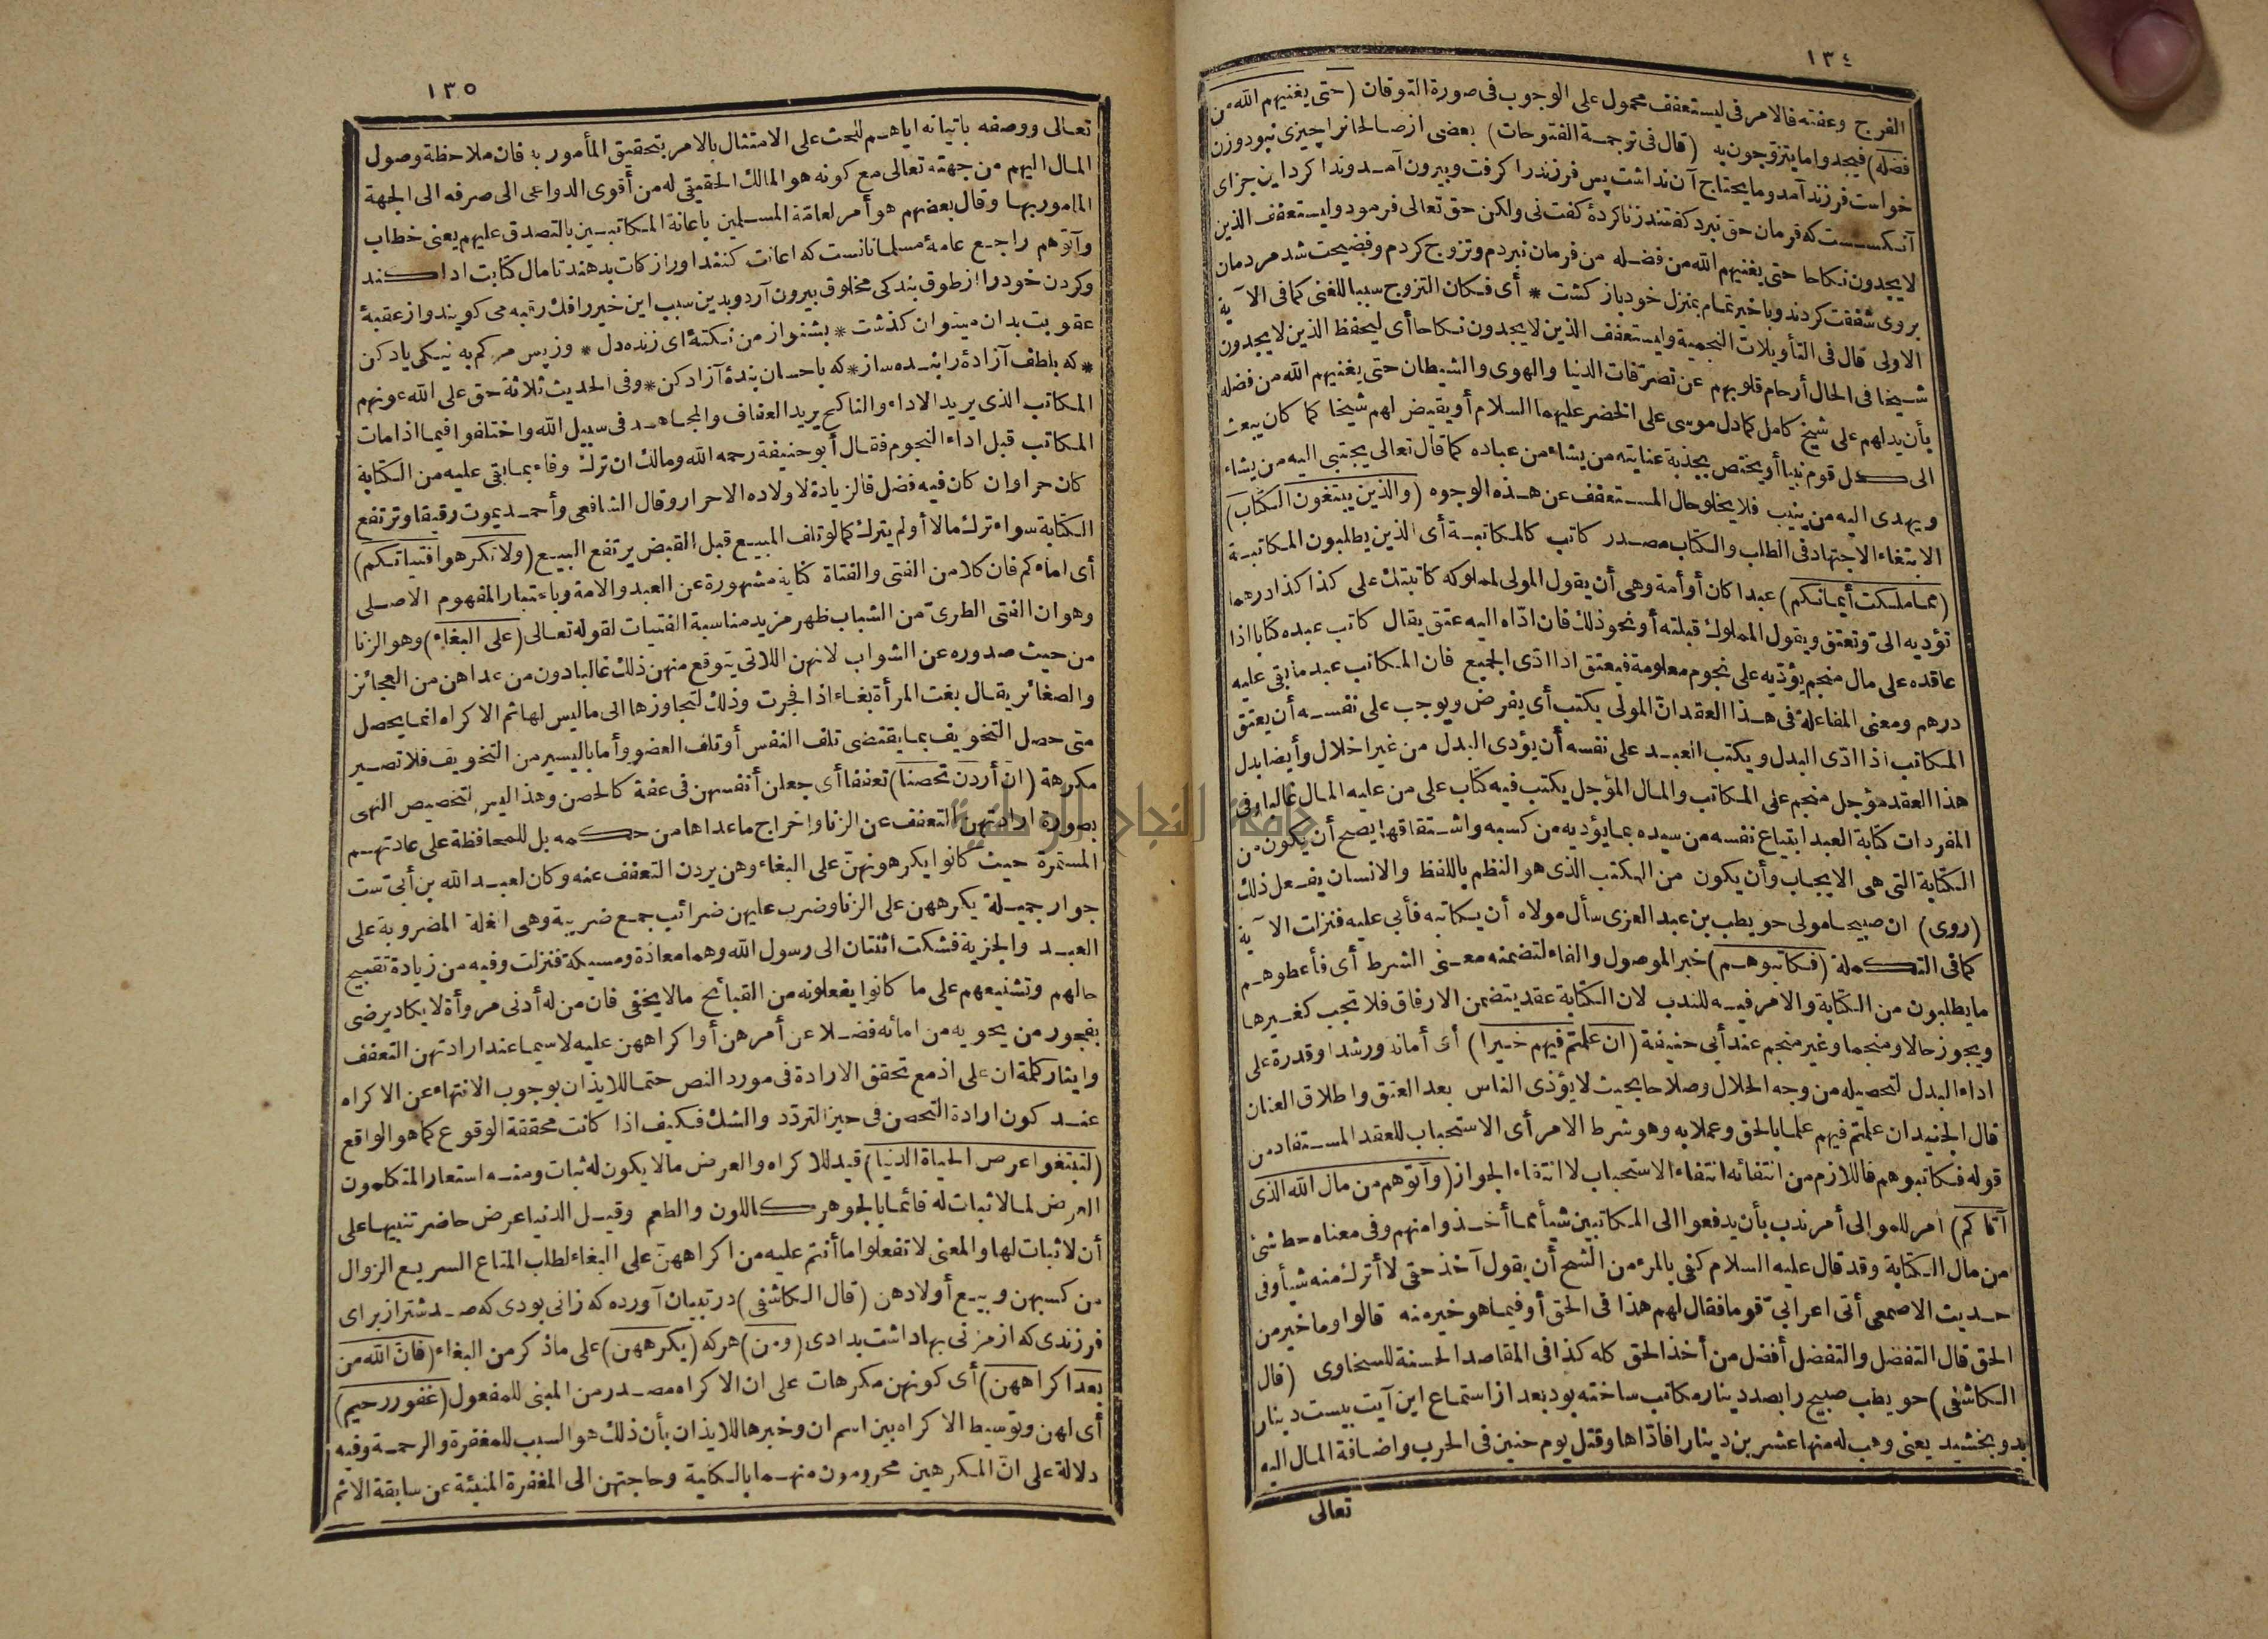 ١٣٤
الفرج وعفته فالامر فى ليستعفف محمول على الوجوب فى صورة التوقان (حتى يغنيهم الله من
فضله) فيجدوا ما يتزوجون به (قال فى ترجمة الفتوحات) بعضى از صالحانرا چيزى نبود وزن
خواست فرزند آمد وما يحتاج آن نداشت پس فرزند را كرفت وبيرون آمد وندا كرد اين جزاى
آنكسست كه فرمان حق نبرد كفتند زنا كردۀ كفت نى ولكن حق تعالى فرمود وليستعفف الذين
لا يجدون نكاحا حتى يغنيهم الله من فضله من فرمان نبردم وتزوج كردم وفضيحت شدم مردمان
بروى شفقت كردند وبا خير تمام بمنزل خود باز كشت * أى فكان التزوج سببا للغنى كما فى الآية
الاولى قال فى التأويلات النجمية وليستعفف الذين لا يجدون نكاحا أى ليحفظ الذين لا يجدون
شيخا فى الحال أرحام قلوبهم عن تصرّفات الدنيا والهوى والشيطان حتى يغنيهم الله من فضله
بأن يدلهم على شيخ كامل كما دل موسى على الخضر عليهما السلام أو يقيض لهم شيخا كما كان يبعث
الى كل قوم نبيا أو يختص بجذبة عنايته من يشاء من عباده كما قال تعالى يجتبى اليه من يشاء
ويهدى اليه من ينيب فلا يخلو حال المستعفف عن هذه الوجوه (والذين يبتغون الكتاب)
الابتغاء الاجتهاد فى الطلب والكتاب مصدر كاتب كالمكاتبة أى الذين يطلبون المكاتبة
(مما ملكت أيمانكم) عبدا كان أو أمة وهى أن يقول المولى لمملوكه كاتبتك على كذا كذا درهما
تؤديه الىّ وتعتق ويقول المملوك قبلته أو نحو ذلك فان ادّاه اليه عتق يقال كاتب عبده كتابا اذا
عاقده على مال منجم يؤدّيه على نجوم معلومة فيعتق اذا ادّى الجميع فان المكاتب عبد ما بقى عليه
درهم ومعنى المفاعلة فى هذا العقد انّ المولى يكتب أى يفرض ويوجب على نفسه أن يعتق
المكاتب اذا ادّى البدل ويكتب العبد على نفسه أن يؤدى البدل من غير اخلال وأيضا بدل
هذا العقد مؤجل منجم على المكاتب والمال المؤجل يكتب فيه كتاب على من عليه المال غالبا وفى
المفردات كتابة العبد ابتياع نفسه من سيده بما يؤديه من كسبه واشتقاقها يصح أن يكون من
الكتابة التى هى الايجاب وأن يكون من الكتب الذى هو النظم باللفظ والانسان يفعل ذلك
(روى) ان صبيحا مولى حويطب بن عبد العزى سأل مولاه أن يكاتبه فأبى عليه فنزلت الآية
كما فى التكملة (فكاتبوهم) خبر الموصول والفاء لتضمنه معنى الشرط أى فأعطوهم
ما يطلبون من الكتابة والامر فيه للندب لان الكتابة عقد يتضمن الارفاق فلا تجب كغيرها
ويجوز حالا ومنجما وغير منجم عند أبى حنيفة (ان علمتم فيهم خيرا) أى أمانة ورشدا وقدرة على
اداء البدل لتحصيله من وجه الحلال وصلاحا بحيث لا يؤذى الناس بعد العتق واطلاق العنان
قال الجنيد ان علمتم فيهم علما بالحق وعملا به وهو شرط الامر أى الاستحباب للعقد المستفاد من
قوله فكاتبوهم فاللازم من انتفائه انتفاء الاستحباب لا انتفاء الجواز (وآتوهم من مال الله الذى
آتاكم) امر للموالى أمر ندب بأن يدفعوا الى المكاتبين شيأ مما أخذوا منهم وفى معناه حط شئ
من مال الكتابة وقد قال عليه السلام كفى بالمرء من الشح أن يقول آخذ حقى لا أترك منه شيأ وفى
حديث الاصمعى أتى اعرابىّ قوما فقال لهم هذا فى الحق أو فيما هو خير منه قالوا وما خير من
الحق قال التفضل والتفضل أفضل من أخذ الحق كله كذا فى المقاصد الحسنة للسخاوى (قال
الكاشفى) حويطب صبيح را بصد دينار مكاتب ساخته بود بعد از استماع اين آيت بيست دينار
بدو بخشيد يعنى وهب له منها عشرين دينارا فأدّاها وقتل يوم حنين فى الحرب واضافة المال اليه
تعالى
١٣٥
تعالى ووصفه باتيانه اياهم للحث على الامتثال بالامر بتحقيق المأمور به فان ملاحظة وصول
المال اليهم من جهته تعالى مع كونه هو المالك الحقيقى له من أقوى الدواعى الى صرفه الى الجهة
المامور بها وقال بعضهم هو أمر لعامّة المسلمين باعانة المكاتبين بالتصدق عليهم يعنى خطاب
وآتوهم راجع عامۀ مسلمانانست كه اعانت كنند او را از زكات بدهند تا مال كتابت ادا كند
وكردن خود را از طوق بندكى مخلوق بيرون آرد وبدين سبب اين خير را فك رقبه مى كويند واز عقبۀ
عقوبت بدان ميتوان كذشت * بشنو از من نكتۀ اى زنده دل * وز پس مركم به نيكى ياد كن
* كه بلطف آزادۀ را بنده ساز * كه باحسان بندۀ آزاد كن * وفى الحديث ثلاثة حق على الله عونهم
المكاتب الذى يريد الاداء والناكح يريد العفاف والمجاهد فى سبيل الله واختلفوا فيما اذا مات
المكاتب قبل اداء النجوم فقال أبو حنيفة رحمه الله ومالك ان ترك وفاء بما بقى عليه من الكتابة
كان حرا وان كان فيه فضل فالزيادة لاولاده الاحرار وقال الشافعى وأحمد يموت رقيقا وترتفع
الكتابة سواء ترك مالا أو لم يترك كما لو تلف المبيع قبل القبض يرتفع البيع (ولا تكرهوا فتياتكم)
أى اماءكم فان كلا من الفتى والفتاة كناية مشهورة عن العبد والامة وباعتبار المفهوم الاصلى
وهو ان الفتى الطرىّ من الشباب ظهر مزيد مناسبة الفتيات لقوله تعالى (على البغاء) وهو الزنا
من حيث صدوره عن الشواب لانهن اللاتى يتوقع منهن ذلك غالبا دون من عداهن من العجائز
والصغائر يقال بغت المرأة بغاء اذا فجرت وذلك لتجاوزها الى ما ليس لها ثم الاكراه انما يحصل
متى حصل التخويف بما يقتضى تلف النفس أو تلف العضو وأما باليسير من التخويف فلا تصير
مكرهة (ان أردن تحصنا) تعففا أى جعلن أنفسهن فى عفة كالحصن وهذا ليس لتخصيص النهى
بصورة ارادتهنّ التعفف عن الزنا واخراج ما عداها من حكمه بل للمحافظة على عادتهم
المستمرة حيث كانوا يكرهونهنّ على البغاء وهن يردن التعفف عنه وكان لعبد الله بن أبىّ ست
جوار جميلة يكرههن على الزنا وضرب عليهن ضرائب جمع ضريبة وهى الغلة المضروبة على
العبد والجزية فشكت اثنتان الى رسول الله وهما معاذة ومسيكة فنزلت وفيه من زيادة تقبيح
حالهم وتشنيعهم على ما كانوا يفعلونه من القبائح ما لا يخفى فان من له أدنى مروأة لا يكاد يرضى
بفجور من يحويه من امائه فضلا عن أمرهن أو اكراههن عليه لا سيما عند ارادتهن التعفف
وايثار كلمة ان على اذ مع تحقق الارادة فى مورد النص حتما للايذان بوجوب الانتهاء عن الاكراه
عند كون ارادة التحصن فى حيز التردّد والشك فكيف اذا كانت محققة الوقوع كما هو الواقع
(لتبتغوا عرض الحياة الدنيا) قيد للاكراه والعرض ما لا يكون له ثبات ومنه استعار المتكلمون
العرض لما لا ثبات له قائما بالجوهر كاللون والطعم وقيل الدنيا عرض حاضر تنبيها على
أن لا ثبات لها والمعنى لا تفعلوا ما أنتم عليه من اكراههنّ على البغاء لطلب المتاع السريع الزوال
من كسبهن وبيع أولادهن (قال الكاشفى) در تبيان آورده كه زانى بودى كه صد شتر از براى
فرزندى كه از مزنى بها داشت بدادى (ومن) هر كه (يكرههن) على ما ذكر من البغاء (فان الله من
بعد اكراههن) أى كونهن مكرهات على ان الاكراه مصدر من المبنى للمفعول (غفور رحيم)
أى لهن وتوسيط الاكراه بين اسم ان وخبرها للايذان بأن ذلك هو السبب للمغفرة والرحمة وفيه
دلالة على انّ المكرهين محرومون منهما بالكلية وحاجتهن الى المغفرة المنبئة عن سابقة الاثم
جامعة النجاح الوطنية